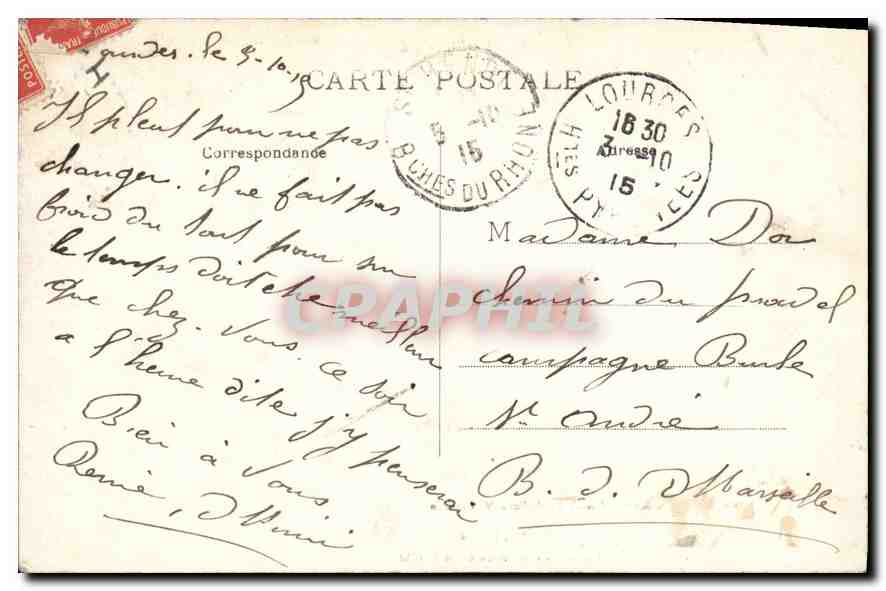 Lourdes. le 3-10-15
CARTE POSTALE
Correspondance
Il pleut pour ne pas
changer. il ne fait pas
froid du tout pour sur
le temps doit etre meilleur
que chez vous. ce soir
a l'heure dite j'y penserai
Bien à Vous
ST ANDRE
5 -10
15
BCHES DU RHONE
LOURDES
16 30
3 -10
15
HTES PYRENEES
Adresse
Madame Dor
chemin du
campagne Burle
St André
B. d. Marseille
CPAPHIL